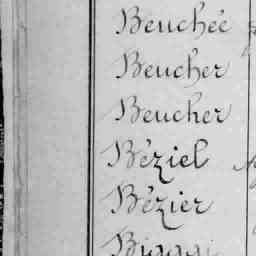 Beuchée
Beucher
Beucher
Béziel
Bézier